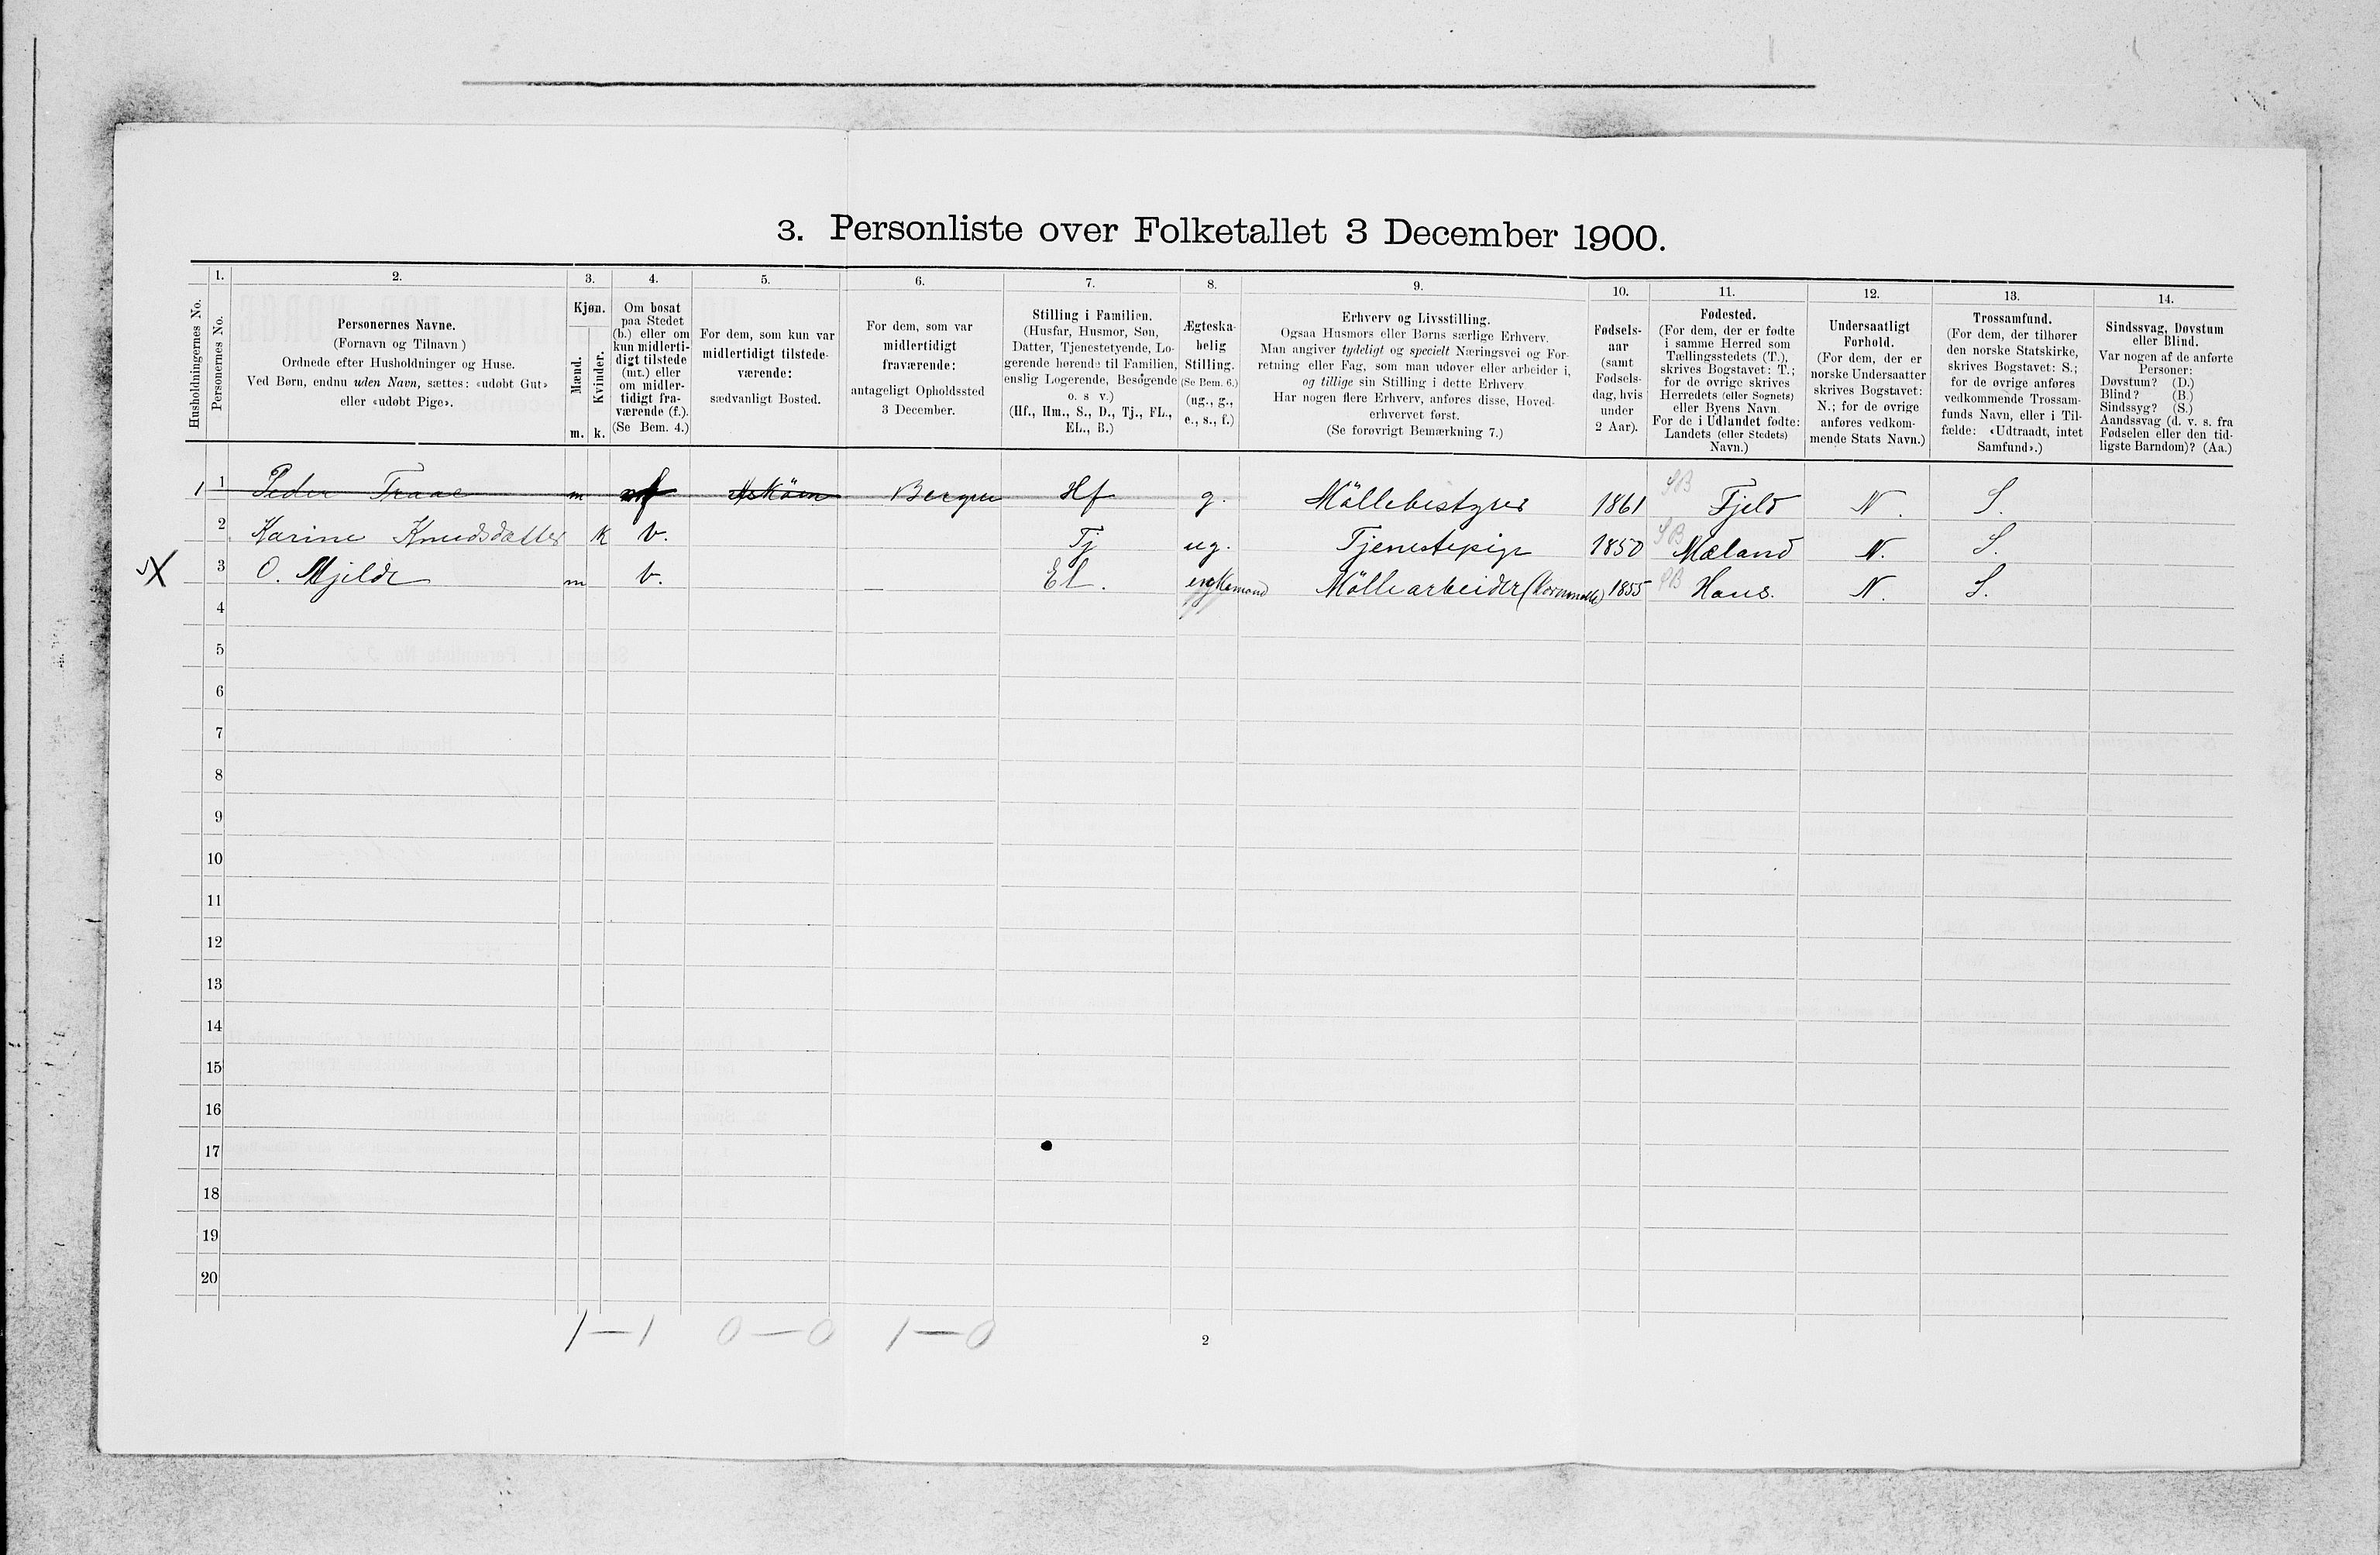 3. Personliste over Folketallet 3 December 1900.
1. 2. 3. 4. 5. 6. 7. 8. 9. 10. 11. 12. 13. 14.
Husholdningernes No.
Personernes No.
Personernes Navne.
(Fornavn og Tilnavn)
Ordnede efter Husholdninger og Huse.
Ved Børn, endnu uden Navn, sættes: «udøbt Gut»
eller «udøbt Pige».
Kjøn.
Mænd.
Kvinder.
m. k.
Om bosat
paa Stedet
(b.) eller om
kun midlerti-
digt tilstede
(mt.) eller
om midler-
tidigt fra-
værende (f.).
(Se Bem. 4.)
For dem, som kun var
midlertidigt tilstede-
værende:
sædvanligt Bosted.
For dem, som var
midlertidigt
fraværende:
antageligt Opholdssted
3 December.
Stilling i Familien.
(Husfar, Husmor, Søn,
Datter, Tjenestetyende, Lo-
gerende hørende til Familien,
enslig Logerende, Besøgende
o. s v.)
(Hf., Hm., S., D., Tj., FL.,
EL., B.)
Ægteska-
belig
Stilling.
(Se Bem. 6.)
(ug., g.,
e., s., f.)
Erhverv og Livsstilling.
Ogsaa Husmors eller Børns særlige Erhverv.
Man angiver tydeligt og specielt Næringsvei og For-
retning eller Fag, som man udøver eller arbeider i,
og tillige sin Stilling i dette Erhverv
Har nogen flere Erhverv, anføres disse, Hoved-
erhvervet først.
(Se forøvrigt Bemærkning 7.)
Fødsels-
aar
(samt
Fødsels-
dag, hvis
under
2 Aar).
Fødested.
(For dem, der er fødte
i samme Herred som
Tællingsstedets (T.),
skrives Bogstavet: T.;
for de øvrige skrives
Herredets (eller Sognets)
eller Byens Navn.
For de i Udlandet fødte:
Landets (eller Stedets)
Navn.)
Undersaatligt
Forhold.
(For dem, der er
norske Undersaatter
skrives Bogstavet:
N.; for de øvrige
anføres vedkom-
mende Stats Navn.)
Trossamfund.
(For dem, der tilhører
den norske Statskirke,
skrives Bogstavet: S.;
for de øvrige anføres
vedkommende Trossam-
funds Navn, eller i Til-
fælde: «Udtraadt, intet
Samfund».)
Sindssvag, Døvstum
eller Blind.
Var nogen af de anførte
Personer:
Døvstum? (D.)
Blind? (B.)
Sindssyg? (S.)
Aandssvag (d. v. s. fra
Fødselen eller den tid-
ligste Barndom)? (Aa.)
1 1 Peder Traae m f Askøen Bergen Hf g. Möllebestyrer 1861 SB Fjeld N. S.
2 Karine Knudsdatter k b. Tj ug. Tjenestepige 1850 SB Mæland N. S.
X 3 O. Mjelde m b. — El. enkemand Möllearbeider (Kornmølle) 1855 SB Hous. N. S.
4
5
6
7
8
9
10
11
12
13
14
15
16
17
18
19
20
1—1 0—0 1—0
2